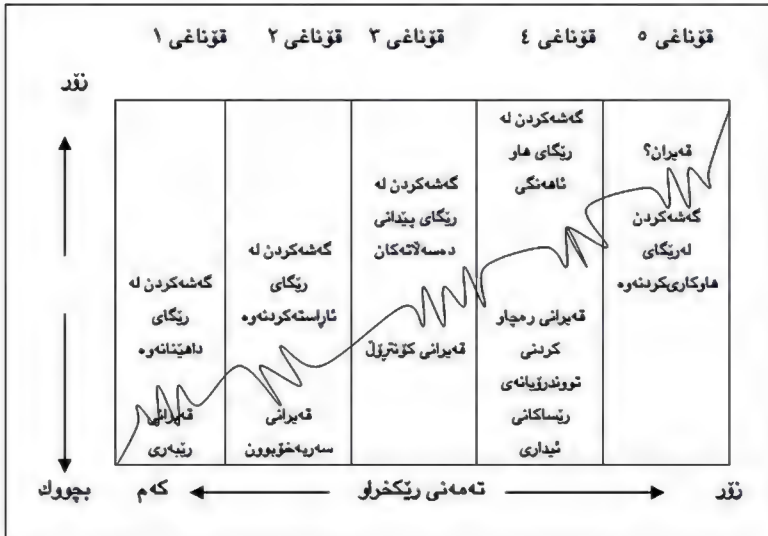 قۆناغی ١ قۆناغی ٢ قۆناغی ٣ قۆناغی ٤ قۆناغی ٥
زۆر
گەشەکردن لە
ڕێگای
داهێنانەوە
قەیرانی
ڕێبەری
گەشەکردن لە
ڕێگای
ئاڕاستەکردنەوە
قەیرانی
سەربەخۆبوون
گەشەکردن لە
ڕێگای پێدانی
دەسەڵاتەکان
قەیرانی کۆنترۆڵ
گەشەکردن لە
ڕێگای هاو
ئاهەنگی
قەیرانی ڕەچاو
کردنی
تووندڕۆیانەی
ڕێساکانی
ئیداری
قەیران؟
گەشەکردن
لەڕێگای
هاوکاریکردنەوە
بچووك
کەم تەمەنی ڕێکخراو زۆر